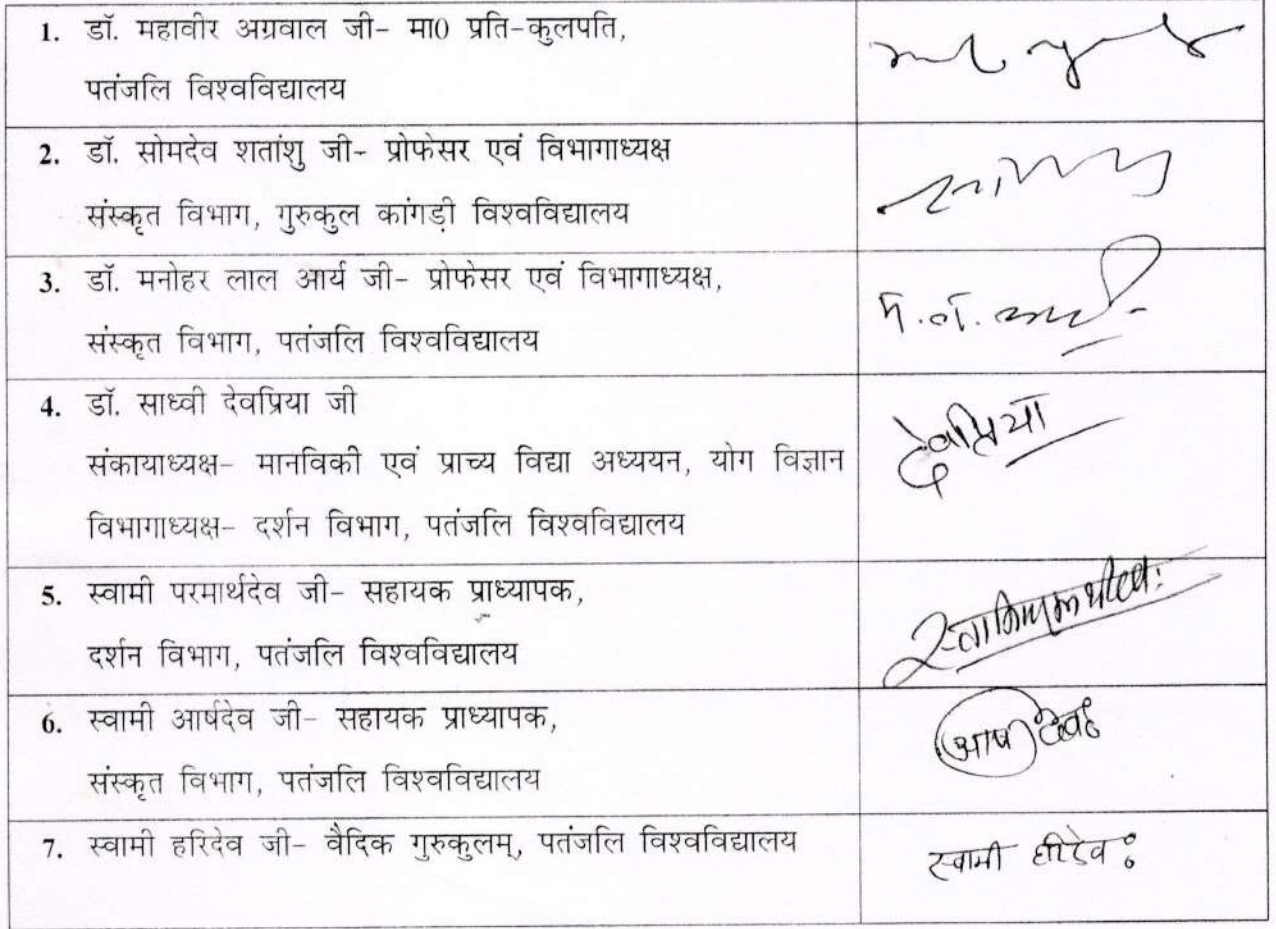 1. डॉ. महावीर अग्रवाल जी- मा0 प्रति-कुलपति,
पतंजलि विश्वविद्यालय
2. डॉ. सोमदेव शतांशु जी- प्रोफेसर एवं विभागाध्यक्ष
संस्कृत विभाग, गुरुकुल कांगड़ी विश्वविद्यालय
3. डॉ. मनोहर लाल आर्य जी- प्रोफेसर एवं विभागाध्यक्ष,
संस्कृत विभाग, पतंजलि विश्वविद्यालय
4. डॉ. साध्वी देवप्रिया जी
संकायाध्यक्ष- मानविकी एवं प्राच्य विद्या अध्ययन, योग विज्ञान
देवप्रिया
विभागाध्यक्ष- दर्शन विभाग, पतंजलि विश्वविद्यालय
5. स्वामी परमार्थदेव जी- सहायक प्राध्यापक,
दर्शन विभाग, पतंजलि विश्वविद्यालय
6. स्वामी आर्षदेव जी- सहायक प्राध्यापक,
आर्षदेवः
संस्कृत विभाग, पतंजलि विश्वविद्यालय
7. स्वामी हरिदेव जी- वैदिक गुरुकुलम्, पतंजलि विश्वविद्यालय
स्वामी हरिदेवः